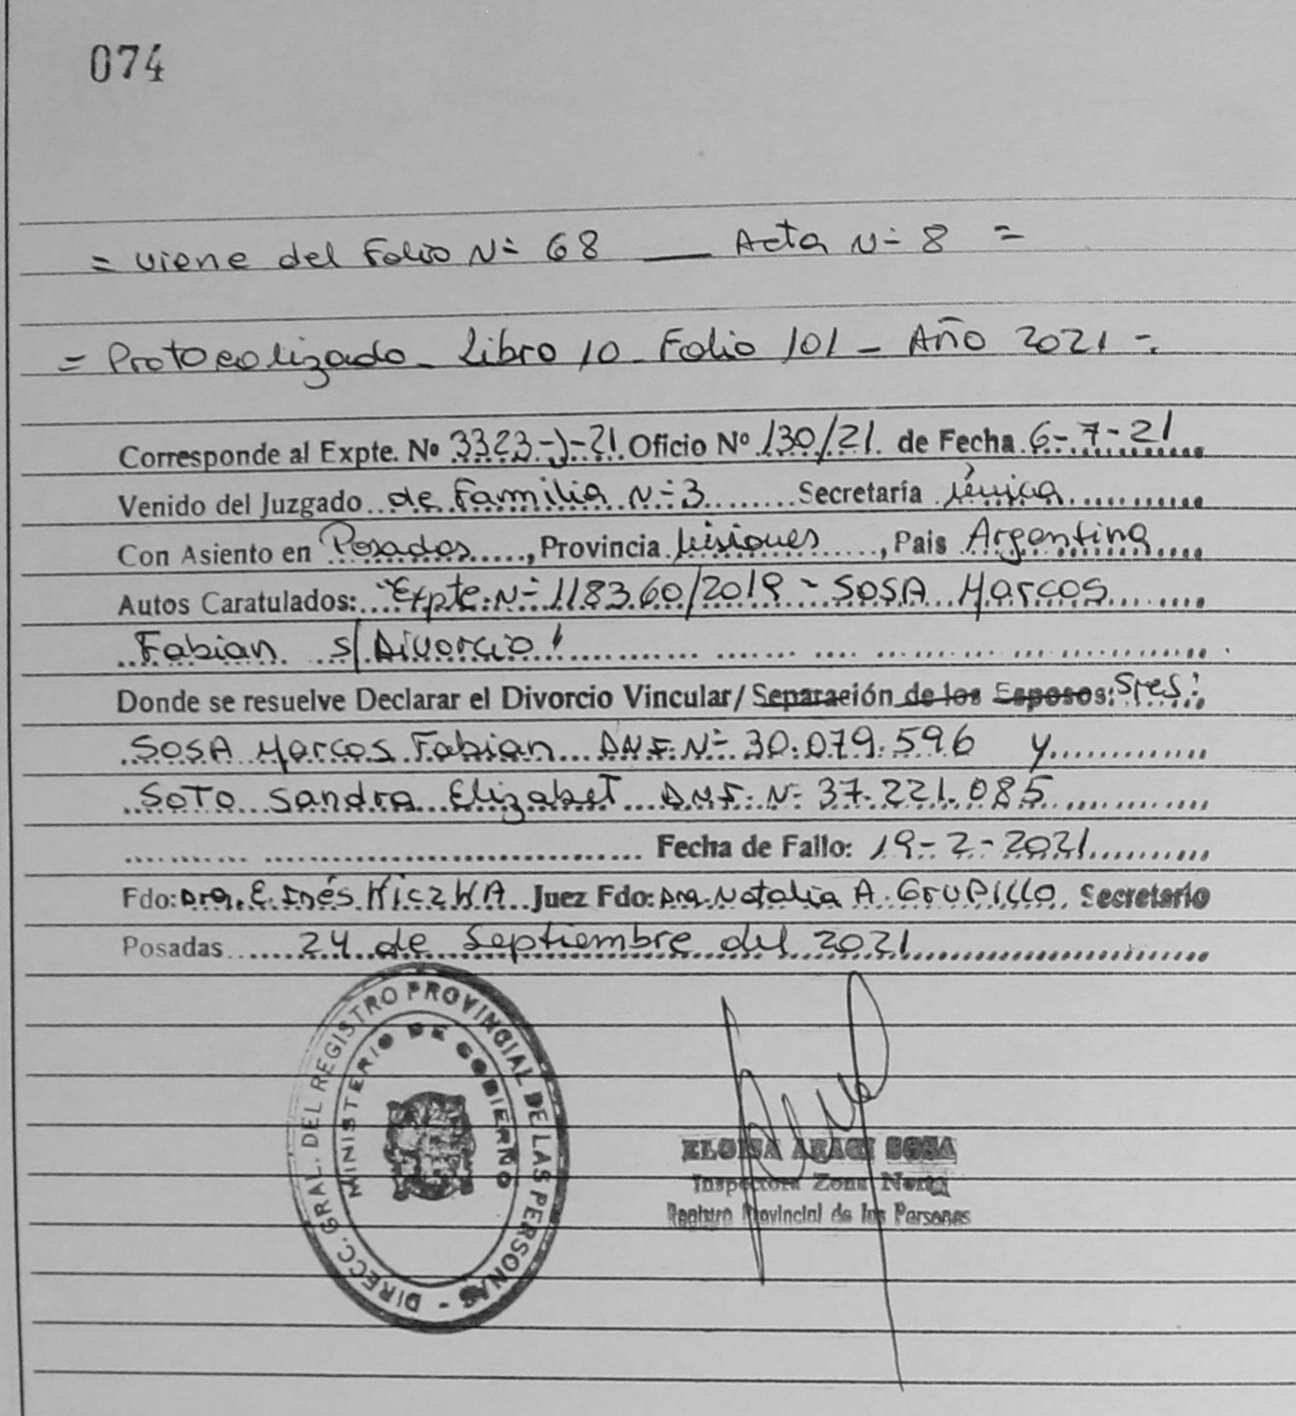 074
= viene del Folio Nº 68 — Acta Nº 8 =
= Protocolizado - Libro 10 - Folio 101 - Año 2021 -.
Corresponde al Expte. Nº 3323-J-21 Oficio Nº 130/21 de Fecha 6-7-21
Venido del Juzgado de Familia Nº 3 Secretaría única
Con Asiento en Posadas, Provincia Misiones, Pais Argentina
Autos Caratulados: "Expte. Nº 118360/2019 - SOSA Marcos
Fabian s/ Divorcio"
Donde se resuelve Declarar el Divorcio Vincular/ Separación de los Esposos: Sres:
SOSA Marcos Fabian D.N.I. Nº 30.079.596 y
SOTO Sandra Elizabet D.N.I. Nº 37.221.085
Fecha de Fallo: 19-2-2021
Fdo: Dra. E. Inés KiczKA Juez Fdo: Dra. Natalia A. GRUPILLO Secretario
Posadas 24 de Septiembre del 2021
DIRECC. GRAL. DEL REGISTRO PROVINCIAL DE LAS PERSONAS -
MINISTERIO DE GOBIERNO
ELOISA SOSA
Inspectora Zona Norte
Registro Provincial de las Personas